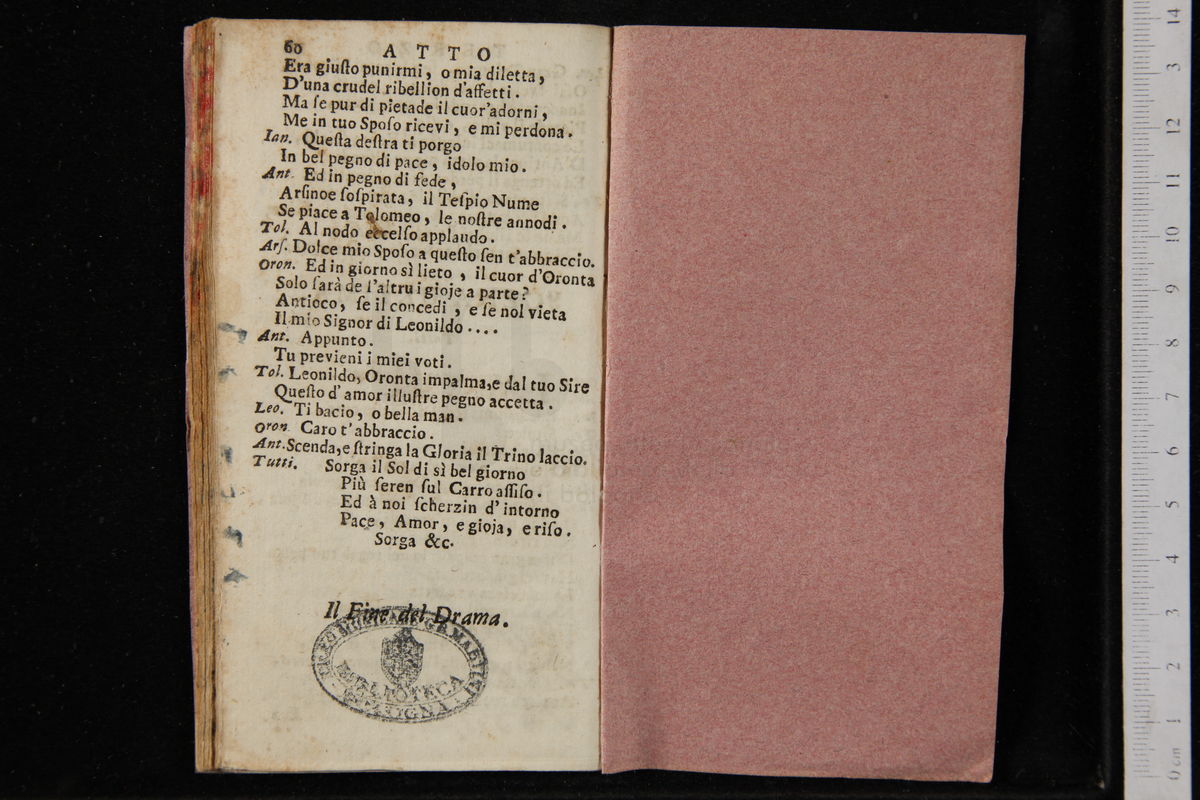 60
ATTO
Era giuſto punirmi, o mia diletta,
D'una crudel ribellion d'affetti.
Ma ſe pur di pietade il cuor'adorni,
Me in tuo Spoſo ricevi, e mi perdona.
Ian. Queſta deſtra ti porgo
In bel pegno di pace, idolo mio.
Ant. Ed in pegno di fede,
Arſinoe ſoſpirata, il Teſpio Nume
Se piace a Tolomeo, le noſtre annodi.
Tol. Al nodo eccelſo applaudo.
Arſ. Dolce mio Spoſo a queſto ſen t'abbraccio.
Oron. Ed in giorno sì lieto, il cuor d'Oronta
Solo ſarà de l'altrui gioje a parte?
Antioco, ſe il concedi, e ſe nol vieta
Il mio Signor di Leonildo....
Ant. Appunto.
Tu previeni i miei voti.
Tol. Leonildo, Oronta impalma, e dal tuo Sire
Queſto d'amor illuſtre pegno accetta.
Leo. Ti bacio, o bella man.
Oron. Caro t'abbraccio.
Ant. Scenda, e ſtringa la Gloria il Trino laccio.
Tutti. Sorga il Sol di sì bel giorno
Più ſeren ſul Carro aſſiſo.
Ed à noi ſcherzin d'intorno
Pace, Amor, e gioja, e riſo.
Sorga &c.
Il Fine del Drama.
BIBLIOTECA
14
3
12
11
10
9
8
7
6
5
4
3
2
1
0 cm